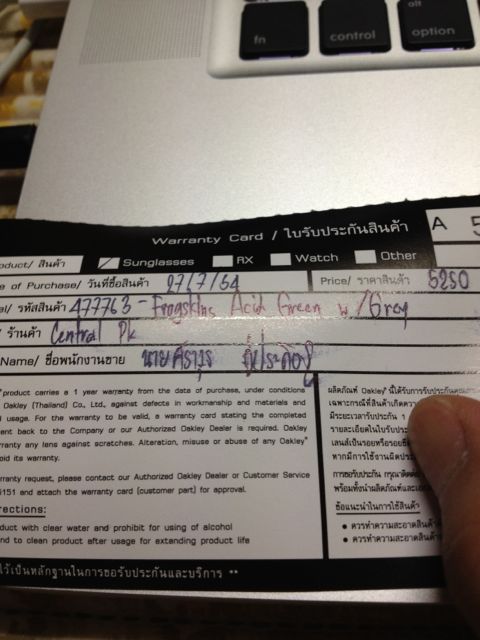 fn control alt option
Warranty Card / ใบรับประกันสินค้า A 5
oduct/ สินค้า Sunglasses RX Watch Other
e of Purchase/ วันที่ซื้อสินค้า 27/7/54 Price/ ราคาสินค้า 5250
el/ รหัสสินค้า 477763 - Frogskins Acid Green w/Grey
/ ร้านค้า Central Pk
Name/ ชื่อพนักงานขาย นาย
product carries a 1 year warranty from the date of purchase, under conditions
Oakley (Thailand) Co., Ltd., against defects in workmanship and materials and
l usage. For the warranty to be valid, a warranty card stating the completed
ent back to the Company or our Authorized Oakley Dealer is required. Oakley
rranty any lens against scratches. Alteration, misuse or abuse of any Oakley
oid its warranty.
rranty request, please contact our Authorized Oakley Dealer or Customer Service
6151 and attach the warranty card (customer part) for approval.
rections:
duct with clear water and prohibit for using of alcohol
nd to clean product after usage for extanding product life
ผลิตภัณฑ์ Oakley นี้ได้รับการรับประกัน
เฉพาะกรณีที่สินค้าเกิดความ
มีระยะเวลารับประกัน 1
รายละเอียดในใบรับประกัน
เลนส์เป็นรอยหรือรอยขีด
หากมีการใช้งานผิดประ
การขอรับประกัน กรุณาติดต่อ
พร้อมทั้งนำผลิตภัณฑ์และเอ
ข้อแนะนำในการใช้สินค้า
• ควรทำความสะอาดสินค้า
• ควรทำความสะอาดสินค้า
ไว้เป็นหลักฐานในการขอรับประกันและบริการ **